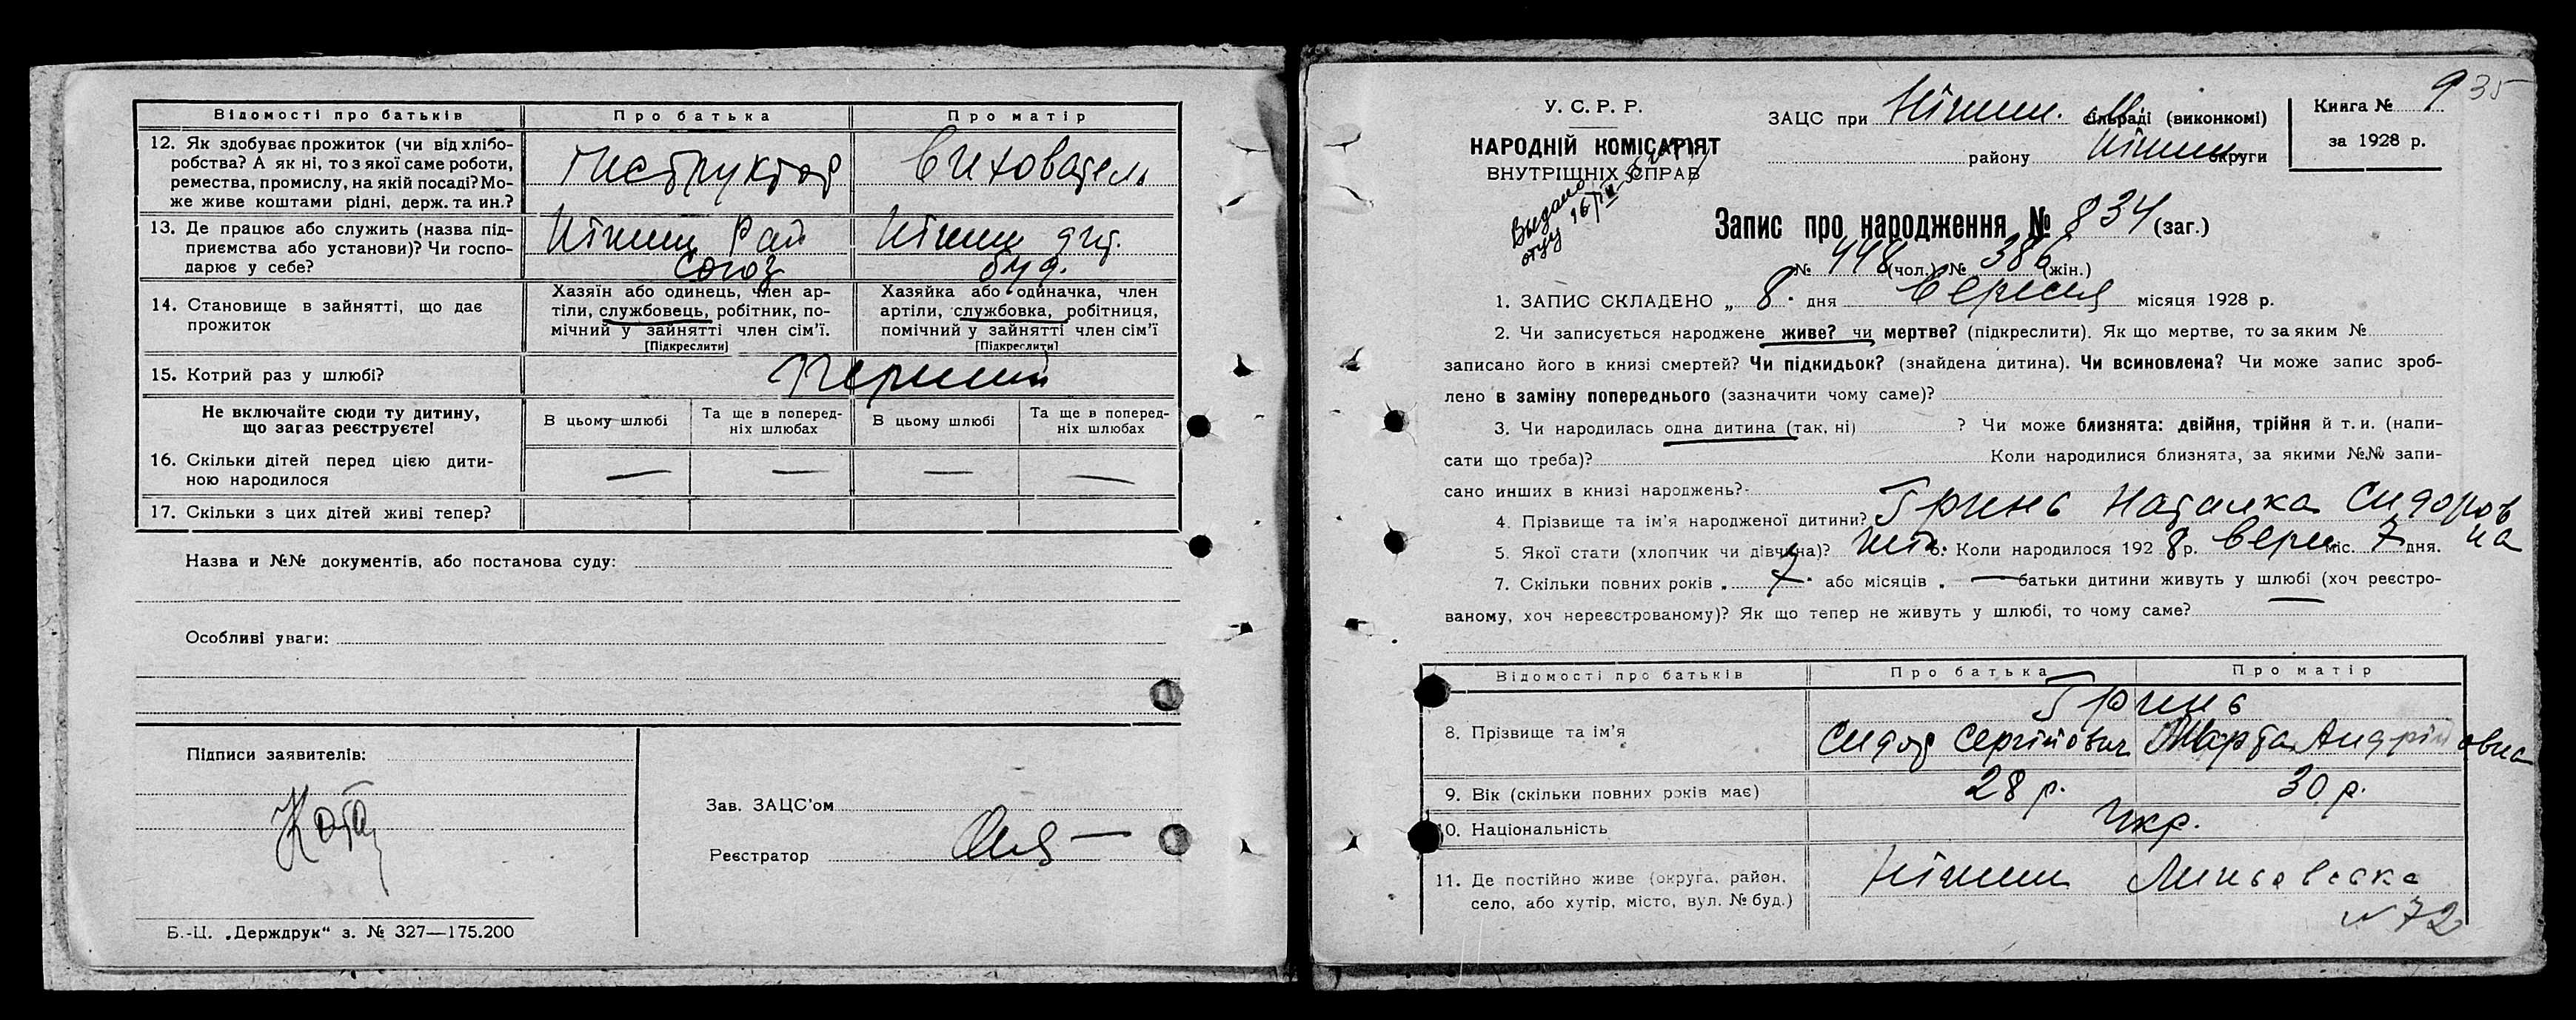 Відомості про батьків
Про батька
Про матір
12. Як здобуває прожиток (чи від хлібо-
робства? А як ні, то з якої саме роботи,
ремества, промислу, на якій посаді? Мо-
же живе коштами рідні, держ. та ин.?
Інструктор
Вихователь
13. Де працює або служить (назва під-
приємства або установи)? Чи госпо-
дарює у себе?
Ніжин Рай
союз
Ніжин дит.
буд.
14. Становище в зайнятті, що дає
прожиток
Хазяїн або одинець, член ар-
тіли, службовець, робітник, по-
мічний у зайнятті член сім'ї.
[Підкреслити]
Хазяйка або одиначка, член
артіли, службовка, робітниця,
помічний у зайнятті член сім'ї
[Підкреслити]
15. Котрий раз у шлюбі?
Перший
Не включайте сюди ту дитину,
що зараз реєструєте!
В цьому шлюбі
Та ще в поперед-
ніх шлюбах
В цьому шлюбі
Та ще в поперед-
ніх шлюбах
16. Скільки дітей перед цією дити-
ною народилося
— — — —
17. Скільки з цих дітей живі тепер?
Назва и №№ документів, або постанова суду:
Особливі уваги:
Підписи заявителів:
Зав. ЗАЦС'ом
Реєстратор
Б.-Ц. „Держдрук“ з. № 327—175.200
У. С. Р. Р.
НАРОДНІЙ КОМІСАРІЯТ
ВНУТРІШНІХ СПРАВ
Выдано
отцу 16/IV
ЗАЦС при Ніжин. сільраді (виконкомі)
району Ніжин округи
Книга № 9
35
за 1928 р.
Запис про народження № 834 (заг.)
№ 448 (чол.) № 386 (жін.)
1. ЗАПИС СКЛАДЕНО „ 8. дня Вересня місяця 1928 р.
2. Чи записується народжене живе? чи мертве? (підкреслити). Як що мертве, то за яким №
записано його в книзі смертей? Чи підкидьок? (знайдена дитина). Чи всиновлена? Чи може запис зроб-
лено в заміну попереднього (зазначити чому саме)?
3. Чи народилась одна дитина (так, ні) ? Чи може близнята: двійня, трійня й т. и. (напи-
сати що треба)? Коли народилися близнята, за якими №№ запи-
сано инших в книзі народжень?
4. Прізвище та ім'я народженої дитини? Гринь Наталка Сидоров
на
5. Якої стати (хлопчик чи дівчина)? жін. 6. Коли народилося 1928 р. Верес міс. 7 дня.
7. Скільки повних років „ 7. або місяців „ — батьки дитини живуть у шлюбі (хоч реєстро-
ваному, хоч нереєстрованому)? Як що тепер не живуть у шлюбі, то чому саме?
Відомості про батьків
Про батька
Про матір
8. Прізвище та ім'я
Гринь
Сидор Сергійович
Марта Андрійовна
9. Вік (скільки повних років має)
28 р.
30 р.
10. Національність
Укр.
11. Де постійно живе (округа, район,
село, або хутір, місто, вул. № буд.)
Ніжин
№ 72